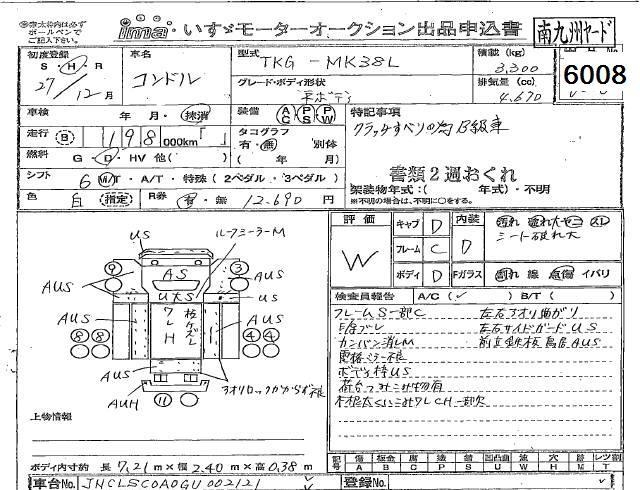 ※赤太枠内は必ず
ボールペンで
ご記入下さい。
ima いすゞモーターオークション出品申込書
南九州ヤード
6008
初度登録
S・H・R
27/12月
車名
コンドル
型式
TKG-MK38L
グレード・ボディ形状
平ボディ
積載 (kg)
3,300
排気量 (cc)
4,670
車検 年 月・抹消
走行 198 000km「 」
燃料 G・D・HV 他( )
シフト 6 M/T・A/T・特殊(2ペダル・3ペダル)
色 白 指定 R券 有・無 12,690円
装備 AC PS PW
タコグラフ 別体
有・無
( 年 月)
特記事項
クラッチすべりの為B級車
書類2週おくれ
架装物年式:( 年式)・不明
※不明の場合は、不明に○をする。
評価
W
キャブ D
フレーム C
ボディ D
内装 D
汚れ 破れ大 ヤニ スレ
シート破れ大
Fガラス 割れ 線 点傷 イバリ
US
ルーフミラーM
AUS
AS
US
UタS
AUS
AUS
フレH
枕ケズレ
AUS
AUS
AUH
アオリロックかからず不良
9
3
8 8
4 4
11
検査員報告 A/C( ✓ ) B/T( )
フレームS一部C
左右アオリ曲がり
左右サイドガードUS
カンバン消しM
電格ミラー不良
ボディ枠US
上物情報
ボディ内寸約 長 7.21 m×幅 2.40 m×高 0.38 m
記号 傷A 板金B 腐C 塗装P サビS 凹凸曲U 波W 穴H 欠M レツ割T
車台No. JNCLSC0A0GU 002121
登録No.